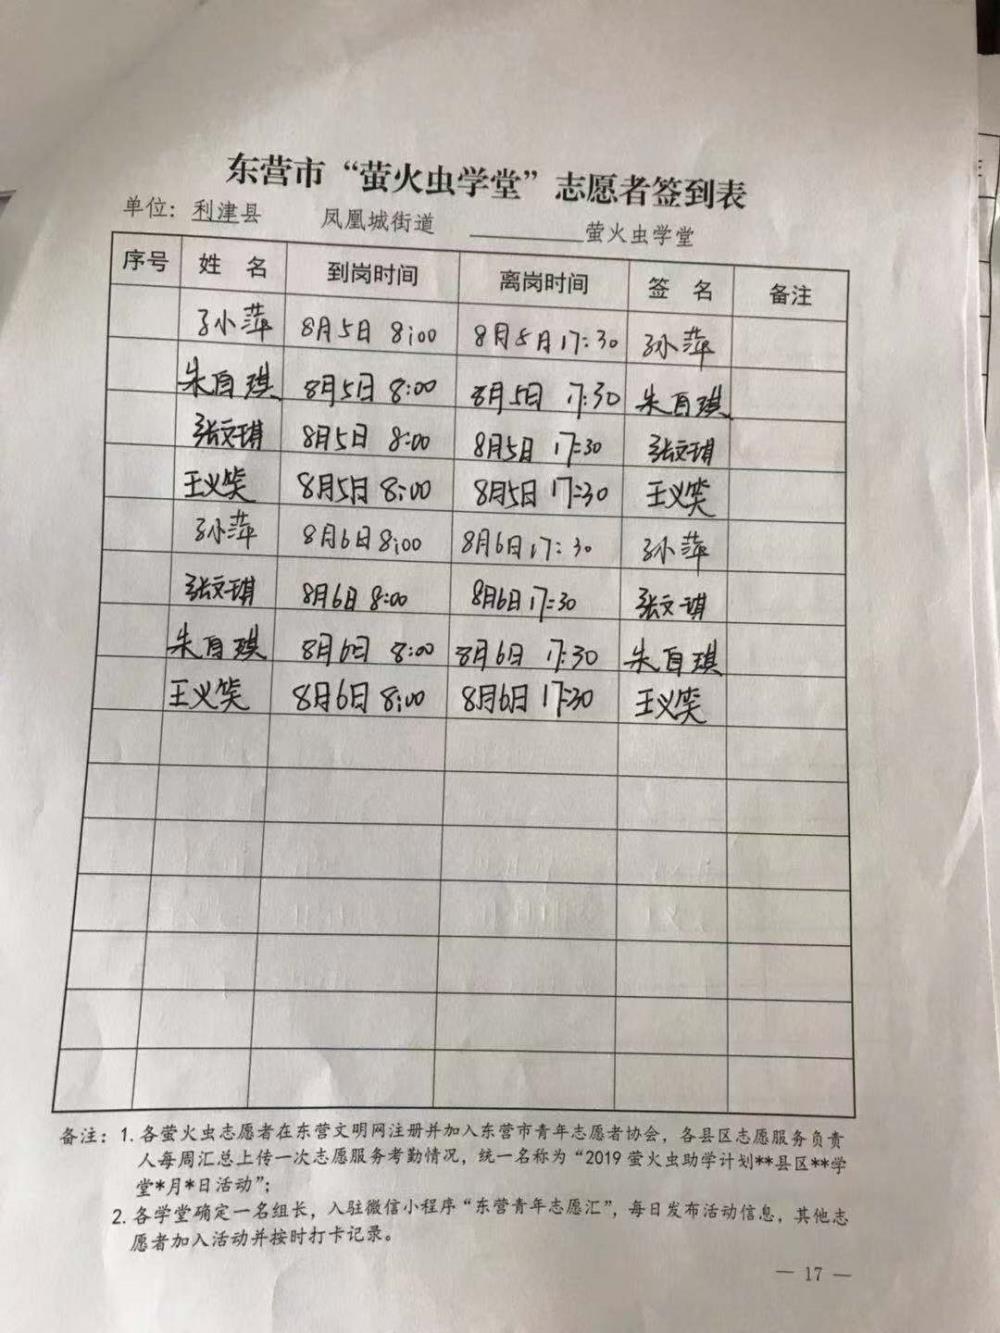 东营市“萤火虫学堂”志愿者签到表
单位：利津县 凤凰城街道 ________萤火虫学堂
序号 姓 名 到岗时间 离岗时间 签 名 备注
孙小萍 8月5日 8:00 8月5日 17:30 孙小萍
朱自琪 8月5日 8:00 8月5日 17:30 朱自琪
张文琪 8月5日 8:00 8月5日 17:30 张文琪
王义笑 8月5日 8:00 8月5日 17:30 王义笑
孙小萍 8月6日 8:00 8月6日 17:30 孙小萍
张文琪 8月6日 8:00 8月6日 17:30 张文琪
朱自琪 8月6日 8:00 8月6日 17:30 朱自琪
王义笑 8月6日 8:00 8月6日 17:30 王义笑
备注：1. 各萤火虫志愿者在东营文明网注册并加入东营市青年志愿者协会，各县区志愿服务负责
人每周汇总上传一次志愿服务考勤情况，统一名称为“2019 萤火虫助学计划**县区**学
堂*月*日活动”；
2. 各学堂确定一名组长，入驻微信小程序“东营青年志愿汇”，每日发布活动信息，其他志
愿者加入活动并按时打卡记录。
— 17 —